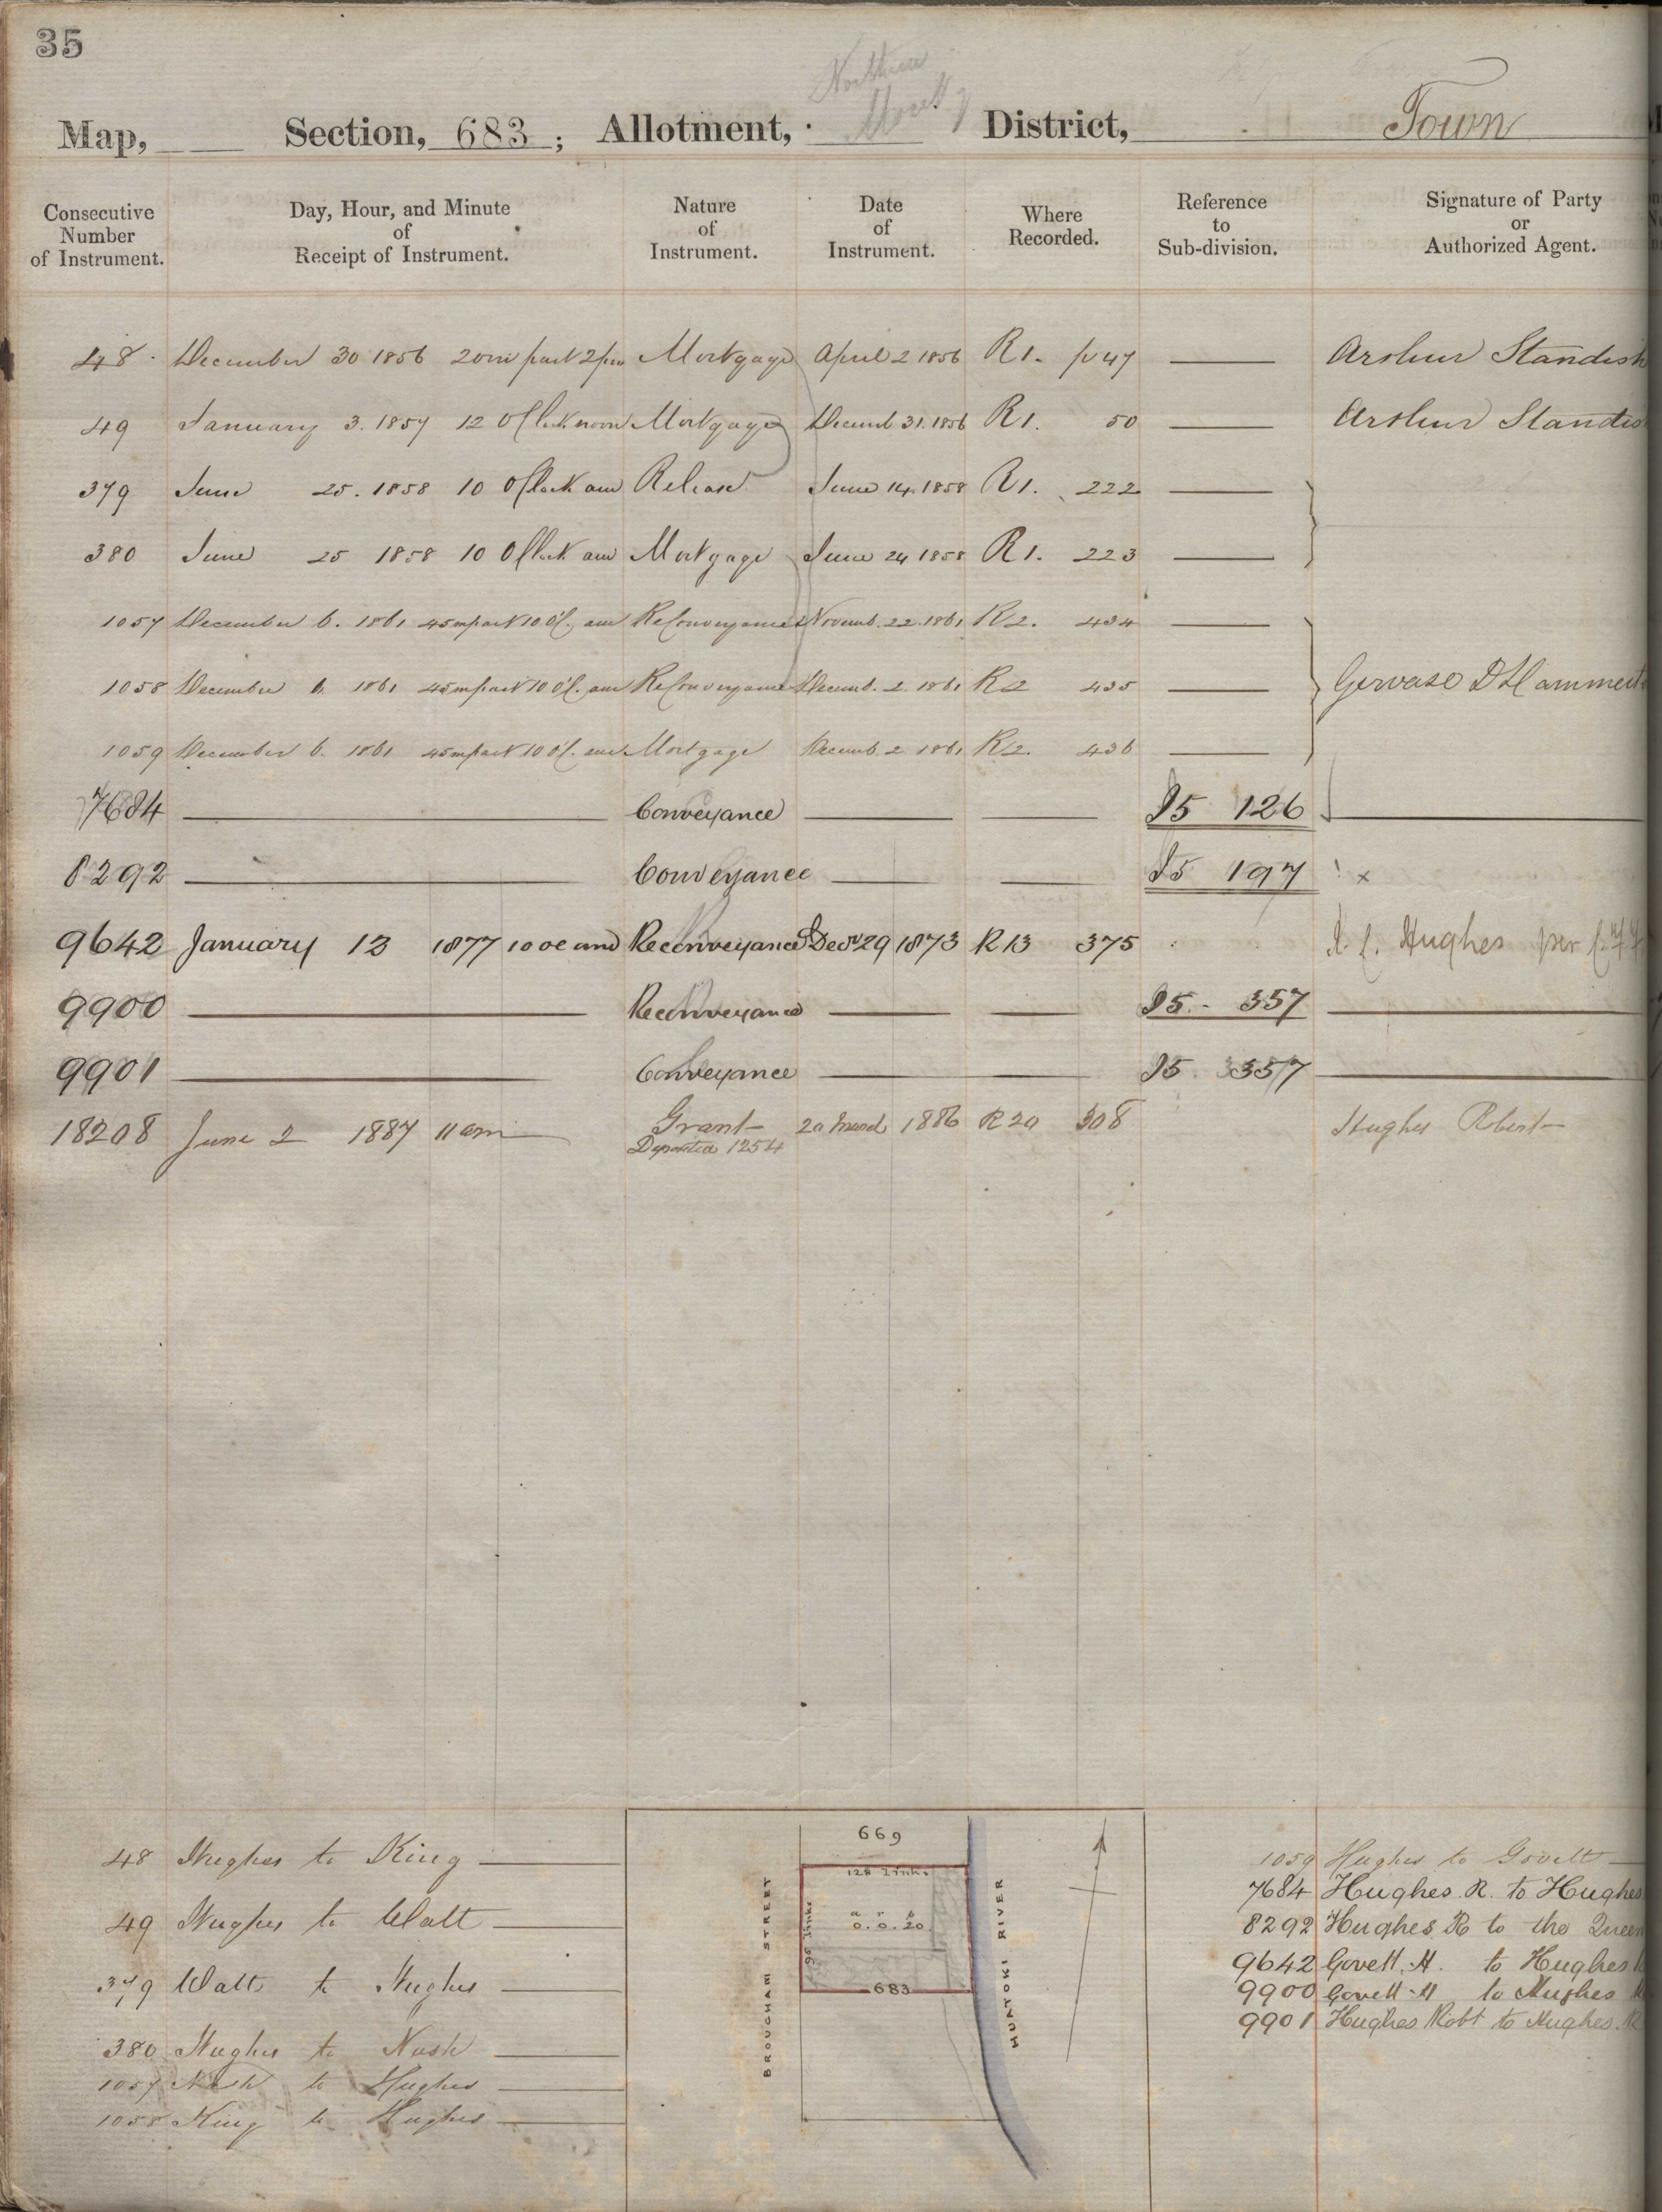 35
Northern
Map, Section, 683; Allotment, District, Town
Consecutive Number of Instrument. Day, Hour, and Minute of Receipt of Instrument. Nature of Instrument. Date of Instrument. Where Recorded. Reference to Sub-division. Signature of Party or Authorized Agent.
48 December 30 1856 20m past 2pm Mortgage April 2 1856 R1. p 47 Arthur Standish
49 January 3. 1857 12 OClock noon Mortgage Decemb 31. 1856 R1. 50 Arthur Standis
379 June 25. 1858 10 OClock am Release June 14. 1858 R1. 222
380 June 25 1858 10 OClock am Mortgage June 24 1858 R1. 223
1057 December 6. 1861 45m past 10 OC. am ReConveyance Novemb. 22. 1861 R2. 434
1058 December 6. 1861 45m past 10 OC. am ReConveyance Decemb. 2. 1861 R2 435 Gervase D Hammert
1059 December 6. 1861 45m past 10 OC. am Mortgage Decemb. 2 1861 R2. 436
7684 Conveyance I5 126
8292 Conveyance I5 197 x
9642 January 13 1877 10 oc am Reconveyance Decr 29 1873 R13 375 Hughes per
9900 Reconveyance I5 - 357
9901 Conveyance I5 357
18208 June 2 1887 11 am Grant 20 March 1886 R20 308 Hughes Robert
Deposited 1254
48 Hughes to King
49 Hughes to Watt
379 Watt to Hughes
380 Hughes to Nash
1057 Nash to Hughes
1058 King to Hughes
669
128 links
96 links
a r p
0. 0. 20.
683
BROUGHAM STREET
HUATOKI RIVER
1059 Hughes to Govett
7684 Hughes. R. to Hughes
8292 Hughes R to the Queen
9642 Govett. H. to Hughes
9900 Govett H to Hughes
9901 Hughes Robt to Hughes. R